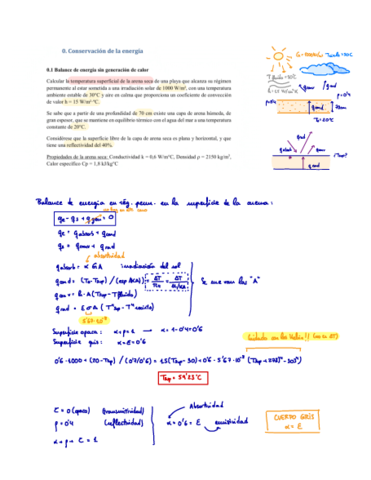 0. Conservación de la energía
0.1 Balance de energía sin generación de calor
Calcular la temperatura superficial de la arena seca de una playa que alcanza su régimen
permanente al estar sometida a una irradiación solar de 1000 W/m², con una temperatura
ambiente estable de 30°C y aire en calma que proporciona un coeficiente de convección
de valor h = 15 W/m²·°C.
Se sabe que a partir de una profundidad de 70 cm existe una capa de arena húmeda, de
gran espesor, que se mantiene en equilibrio térmico con el agua del mar a una temperatura
constante de 20°C.
Considérese que la superficie libre de la capa de arena seca es plana y horizontal, y que
tiene una reflectividad del 40%.
Propiedades de la arena seca: Conductividad k = 0,6 W/m°C, Densidad ρ = 2150 kg/m³,
Calor específico Cp = 1,8 kJ/kg°C
Balance de energía en rég. perm. en la superficie de la arena:
qe - qs + qgen = 0
qe = qabsorb + qcond
qs = qconv + qrad
absortividad
qabsorb = α G A irradiación del sol
Se van las "A"
qconv = h·A (Tsup - Tfluido)
5'67·10⁻⁸
Superficie opaca: α+ρ = 1 → α = 1-0'4 = 0'6
Superficie gris: α = ε = 0'6
Tsup = 54'23°C
(transmisividad)
ρ = 0'4 (reflectividad)
α + ρ + τ = 1
Absortividad
α = 0'6 = ε emisividad
CUERPO GRIS
α = ε